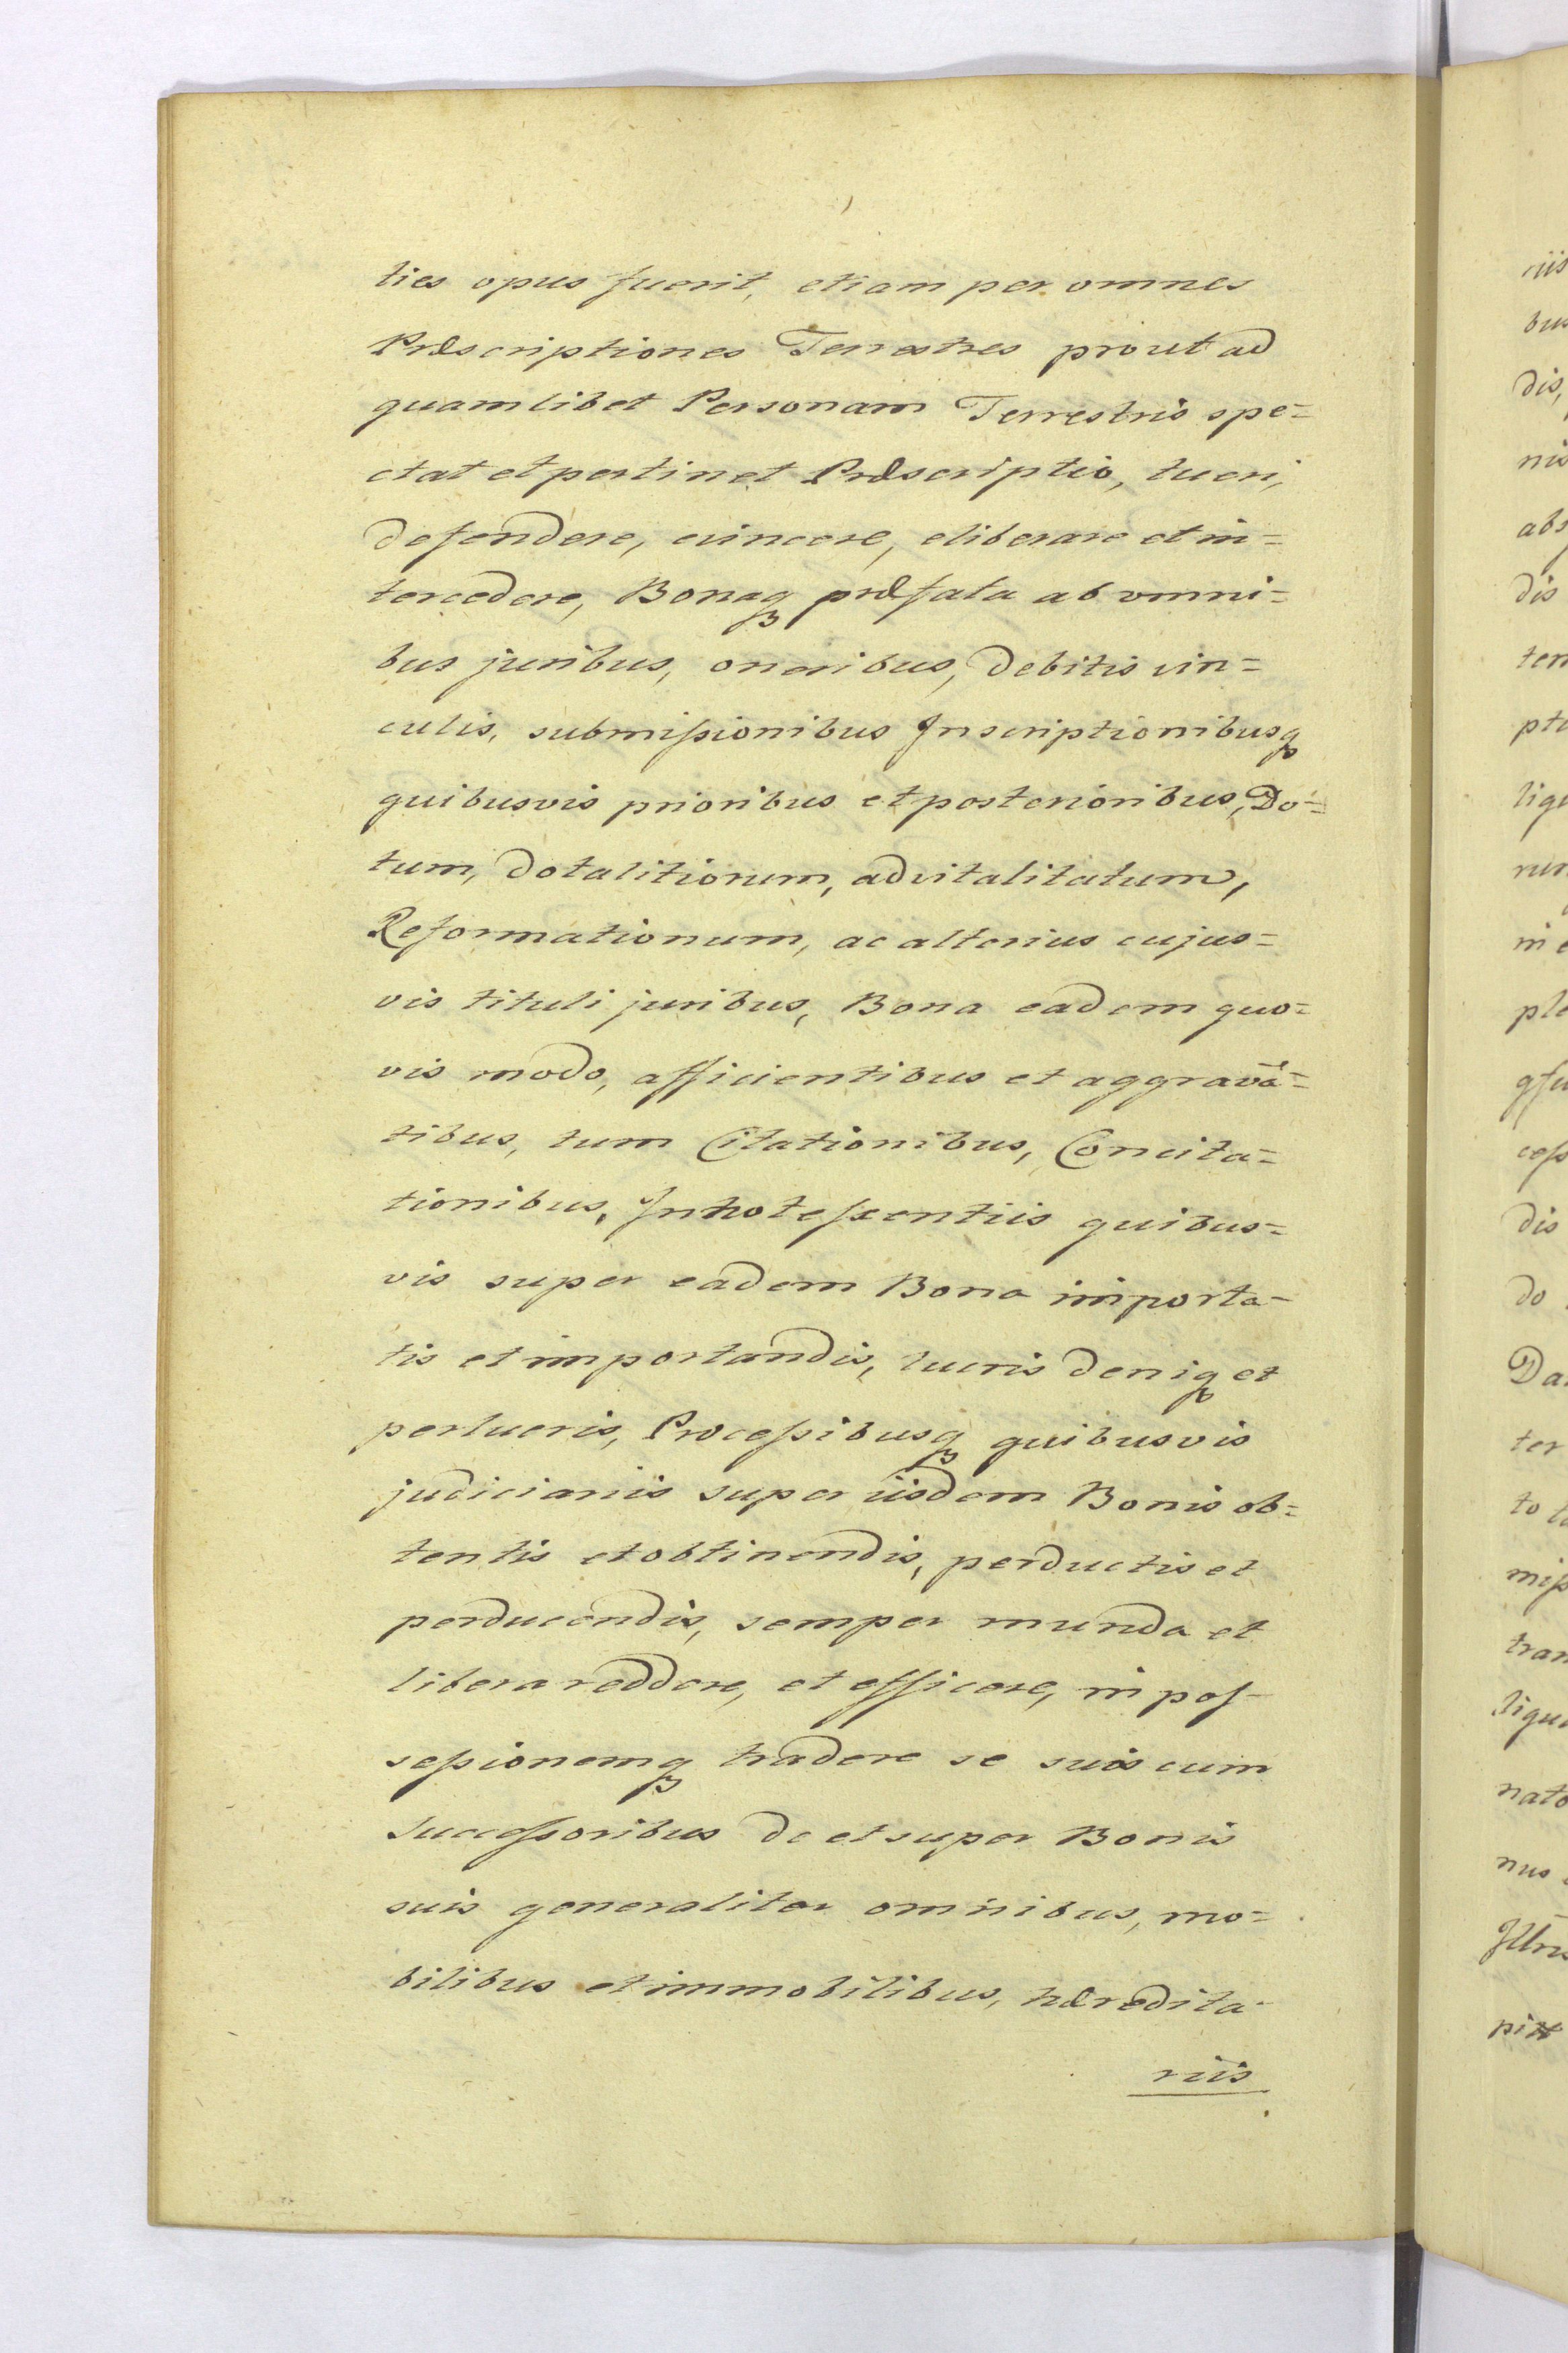 ties opus fuerit, etiam per omnes
Præscriptiones Terrestres prout ad
quamlibet Personam Terrestris spe=
ctat et pertinet Præscriptio, tueri,
defendere, evincere, eliberare et in=
tercedere, Bonaqꝫ præfata ab omni=
bus juribus, oneribus, debitis vin=
culis, submiſsionibus Inscriptionibusqꝫ
quibusvis prioribus et posterioribus, Do=
tum, dotalitiorum, advitalitatum,
Reformationum, ac alterius cujus=
vis tituli juribus, Bona eadem quo=
vis modo, afficientibus et aggravā=
tibus, tum Citationibus, Concita=
tionibus, Innoteſcentiis quibus=
vis super eadem Bona importa=
tis et importandis, lucris deniqꝫ et
perlucris, Proceſsibusqꝫ quibusvis
judiciariis super iisdem Bonis ob=
tentis et obtinendis, perductis et
perducendis, semper munda et
libera reddere, et efficere, in poſ=
seſsionemqꝫ tradere se suis cum
Succeſsoribus de et super Bonis
suis generaliter omnibus, mo=
bilibus et immobilibus, hæredita
riis
riis
bus
dis,
nis
abs
dis
ten
pti
ligu
rum
in e
ple
qſu
ceſs
dis
do
Da
ter
to
miſs
tran
ligu
nato
nus
Illris